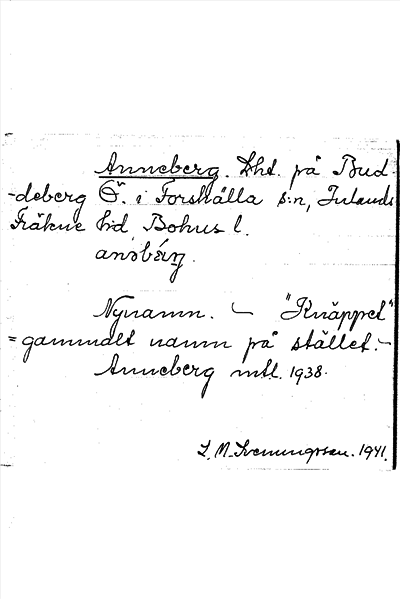 Anneberg. Lht. på Bud-
-deberg Ö. i Forshälla s:n, Inlands
Fräkne hd, Bohus l.

Nynamn. – "Knäppet"
= gammalt namn på stället. –
Anneberg mtl. 1938.
J. M. Svenungsson. 1941.